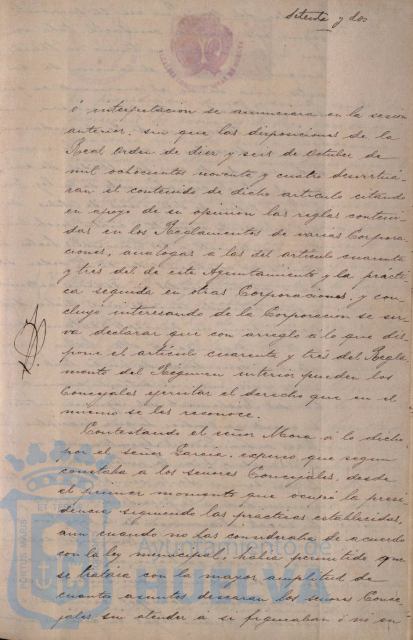 Setenta y dos
ó interpretación se anunciara en la sesión
anterior, sin que las disposiciones de la
Real Orden de diez y seis de Octubre de
mil ochocientos noventa y cuatro desvirtuá-
ran el contenido de dicho artículo citando
en apoyo de su opinion las reglas conteni-
das en los Reglamentos de varias Corpora-
ciones, análogas á las del artículo cuarenta
y tres del de este Ayuntamiento y la prácti-
ca seguida en otras Corporaciones, y con-
cluyó interesando de la Corporacion se sir-
va declarar que con arreglo á lo que dis-
pone el artículo cuarenta y tres del Regla-
mento del Régimen interior pueden los
Concejales ejercitar el derecho que en el
mismo se les reconoce.
Contestando el señor Mora á lo dicho
por el señor Garcia, expuso que segun
constaba á los señores Concejales, desde
el primer momento que ocupó la presi-
dencia siguiendo las prácticas establecidas,
aun cuando no las consideraba de acuerdo
con la ley municipal, habia permitido que
se tratára con la mayor amplitud de
cuantos asuntos desearan los señores Conce-
jales sin atender á si figuraban ó no en
Ayuntamiento de
HUELVA